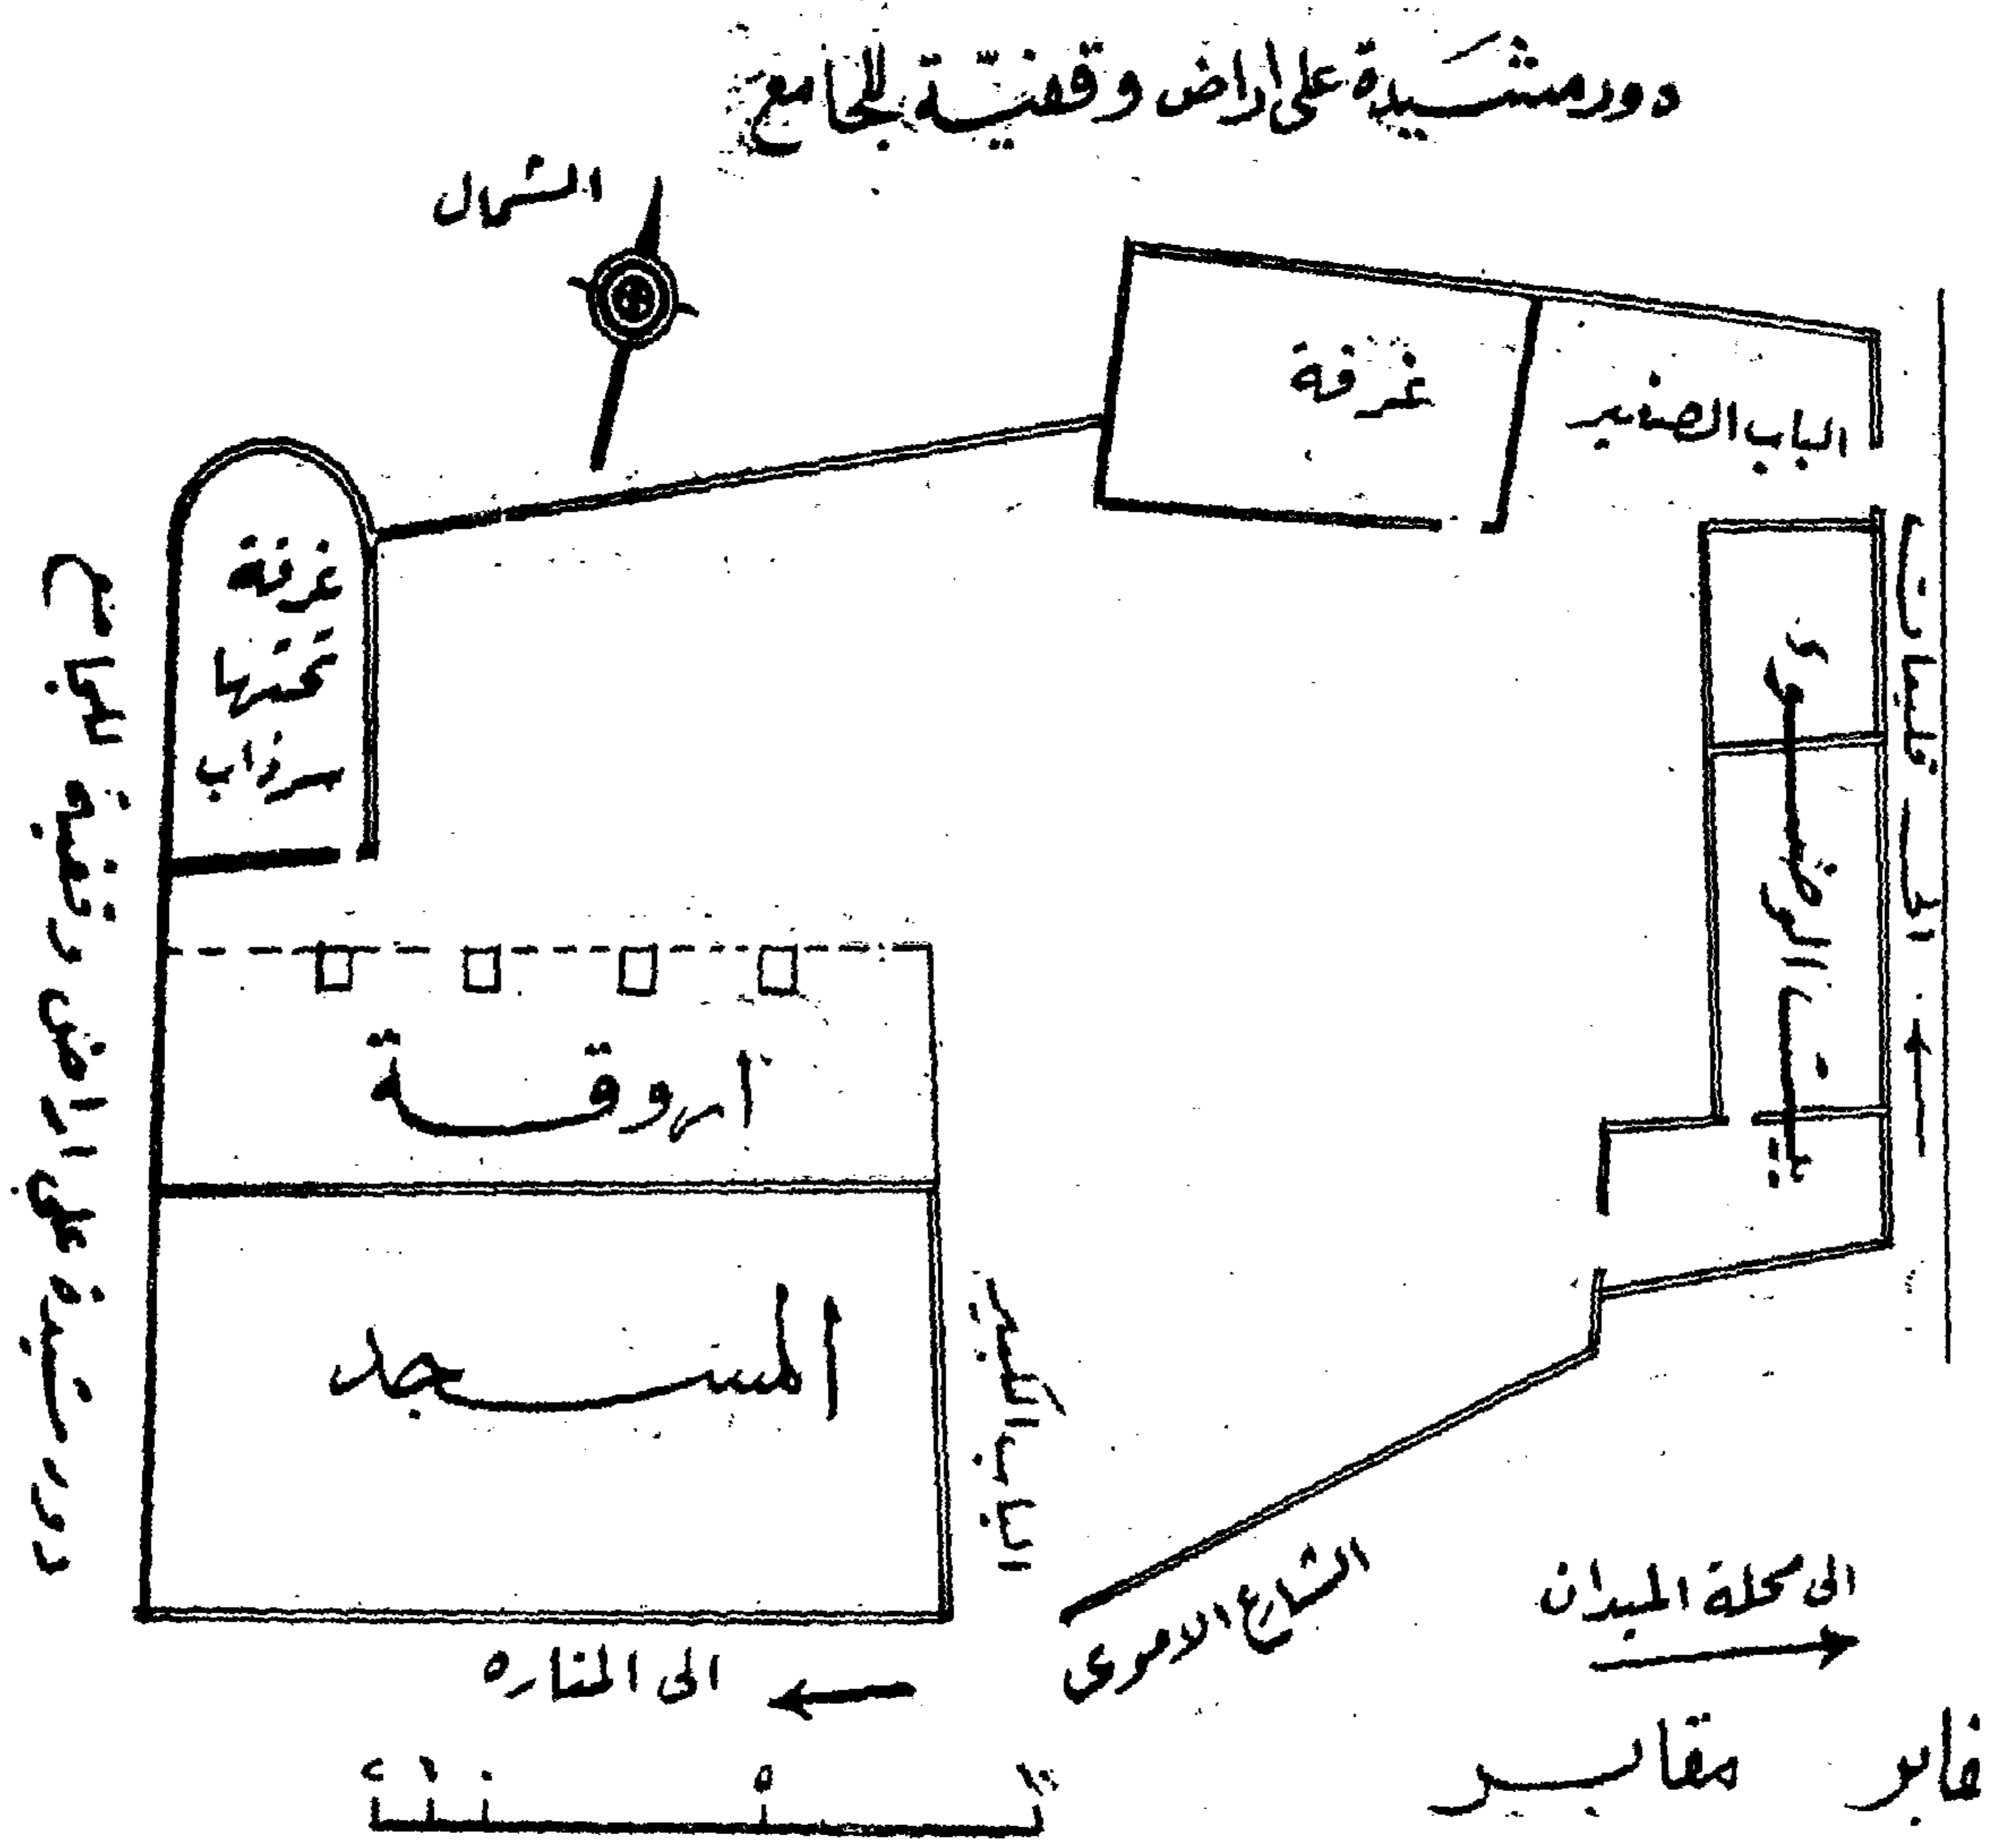 دور مشيدة على اراض وقفية للجامع
الشمال
غرفة
الباب الصغير
غرفة
تحتها
سرداب
دور مشيدة على اراض وقفية للجامع
الى قليبات
بيت الوضوى
اروقة
المسجد
الباب الكبير
الشارع الاموى
الى محلة الميدان
الى المناره
مقابر
٢ ١ ٠ ٥ ١٠